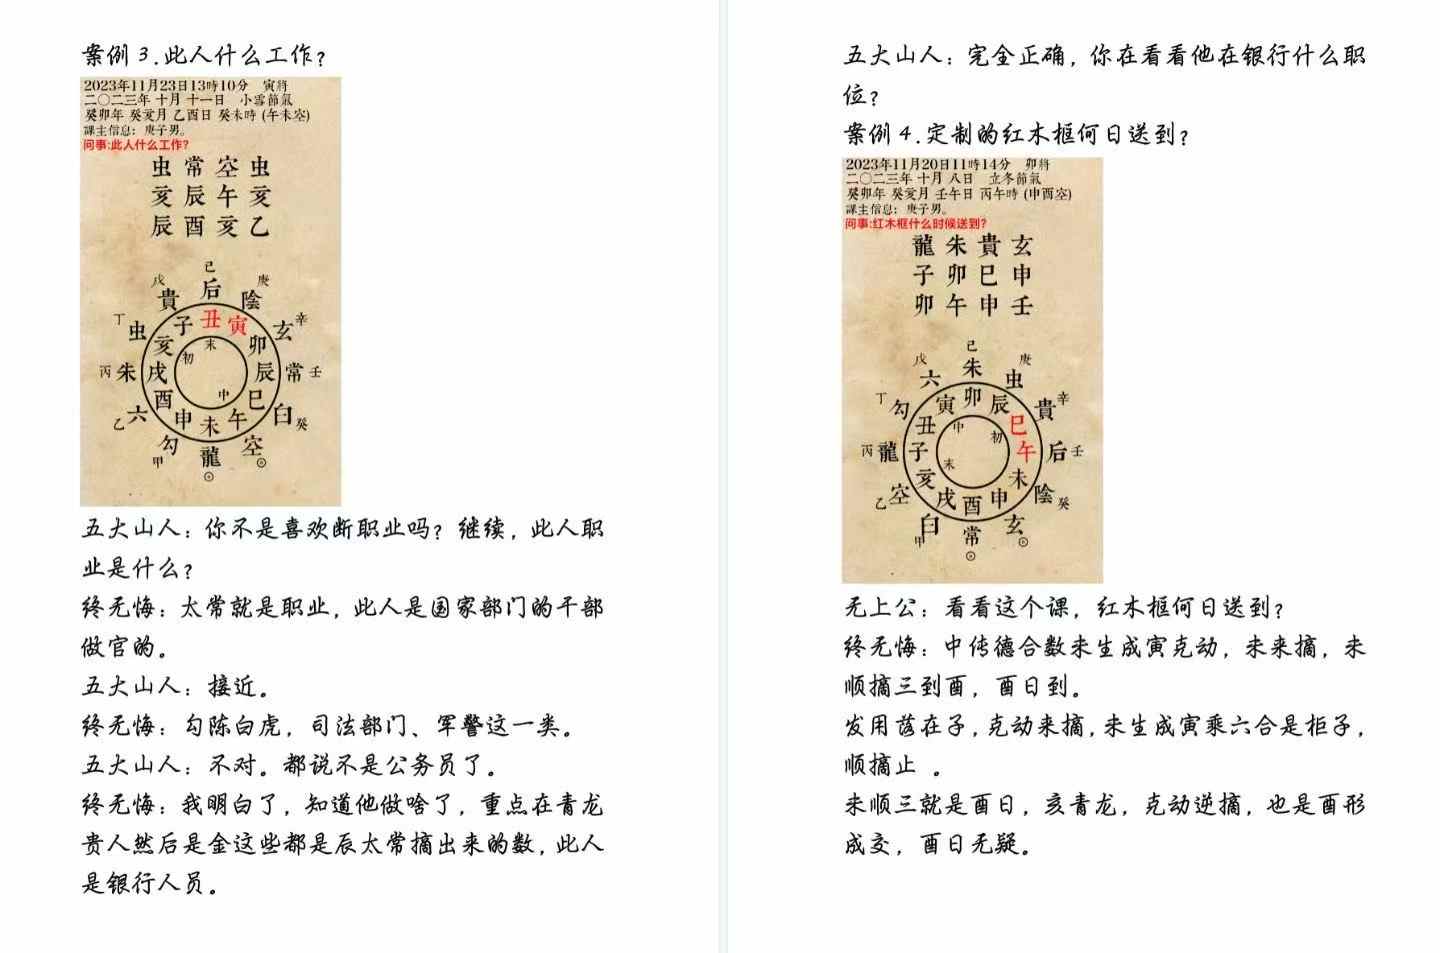 案例3.此人什么工作？
2023年11月23日13時10分 寅將
二〇二三年 十月 十一日 小雪節氣
癸卯年 癸亥月 乙酉日 癸未時 (午未空)
課主信息：庚子男。
问事:此人什么工作?
虫 常 空 虫
亥 辰 午 亥
辰 酉 亥 乙
己
戊 后 庚
貴 陰
丁 子 丑 寅 辛
虫 玄
亥 末 卯
初
丙 朱 戌 辰 常 壬
中
酉 巳
乙 六 申 未 午 白 癸
勾 空
甲 龍 ⊙
⊙
五大山人：你不是喜欢断职业吗？继续，此人职
业是什么？
终无悔：太常就是职业，此人是国家部门的干部
做官的。
五大山人：接近。
终无悔：勾陈白虎，司法部门、军警这一类。
五大山人：不对。都说不是公务员了。
终无悔：我明白了，知道他做啥了，重点在青龙
贵人然后是金这些都是辰太常摘出来的数，此人
是银行人员。
五大山人：完全正确，你在看看他在银行什么职
位？
案例4.定制的红木框何日送到？
2023年11月20日11時14分 卯將
二〇二三年 十月 八日 立冬節氣
癸卯年 癸亥月 壬午日 丙午時 (申酉空)
課主信息：庚子男。
问事:红木框什么时候送到?
龍 朱 貴 玄
子 卯 巳 申
卯 午 申 壬
己
戊 朱 庚
六 虫
丁 寅 卯 辰 辛
勾 貴
丑 中 巳
初
丙 龍 子 午 后 壬
末
亥 未
乙 空 戌 酉 申 陰 癸
白 玄
甲 常 ⊙
⊙
无上公：看看这个课，红木框何日送到？
终无悔：中传德合数未生成寅克动，未来摘，未
顺摘三到酉，酉日到。
发用落在子，克动来摘，未生成寅乘六合是柜子，
顺摘止 。
未顺三就是酉日，亥青龙，克动逆摘，也是酉形
成交，酉日无疑。